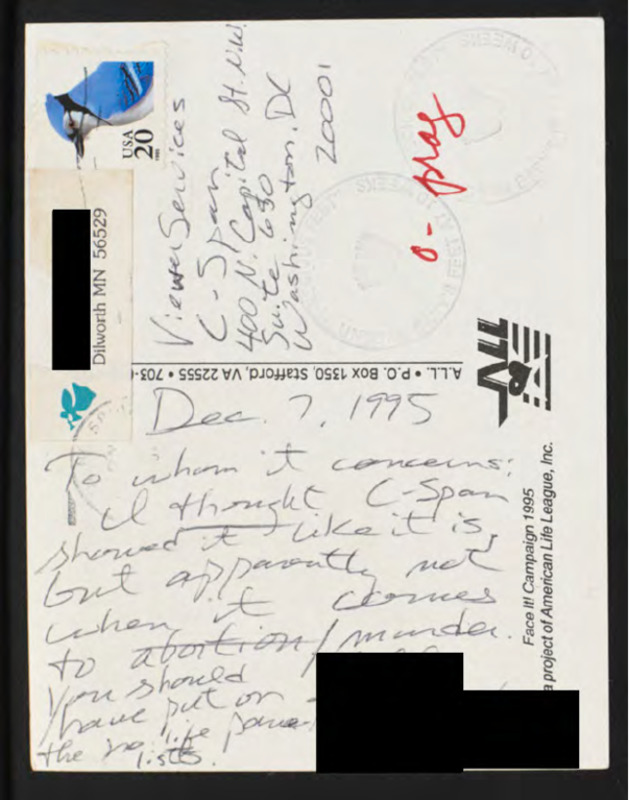 USA
20
Dilworth MN 56529
Viewer Services
C-Span
400 N. Capital St. N.W.
Suite 650
Washington, DC
20001
A.L.L. • P.O. Box 1350, Stafford, VA 22555 • 703-
ALL
Face It! Campaign 1995
a project of American Life League, Inc.
Dec. 7, 1995
To whom it concerns:
I thought C-Span
showed it like it is,
but apparently not
when it comes
to abortion/murder.
You should
have put on
the pro life pane-
lists.